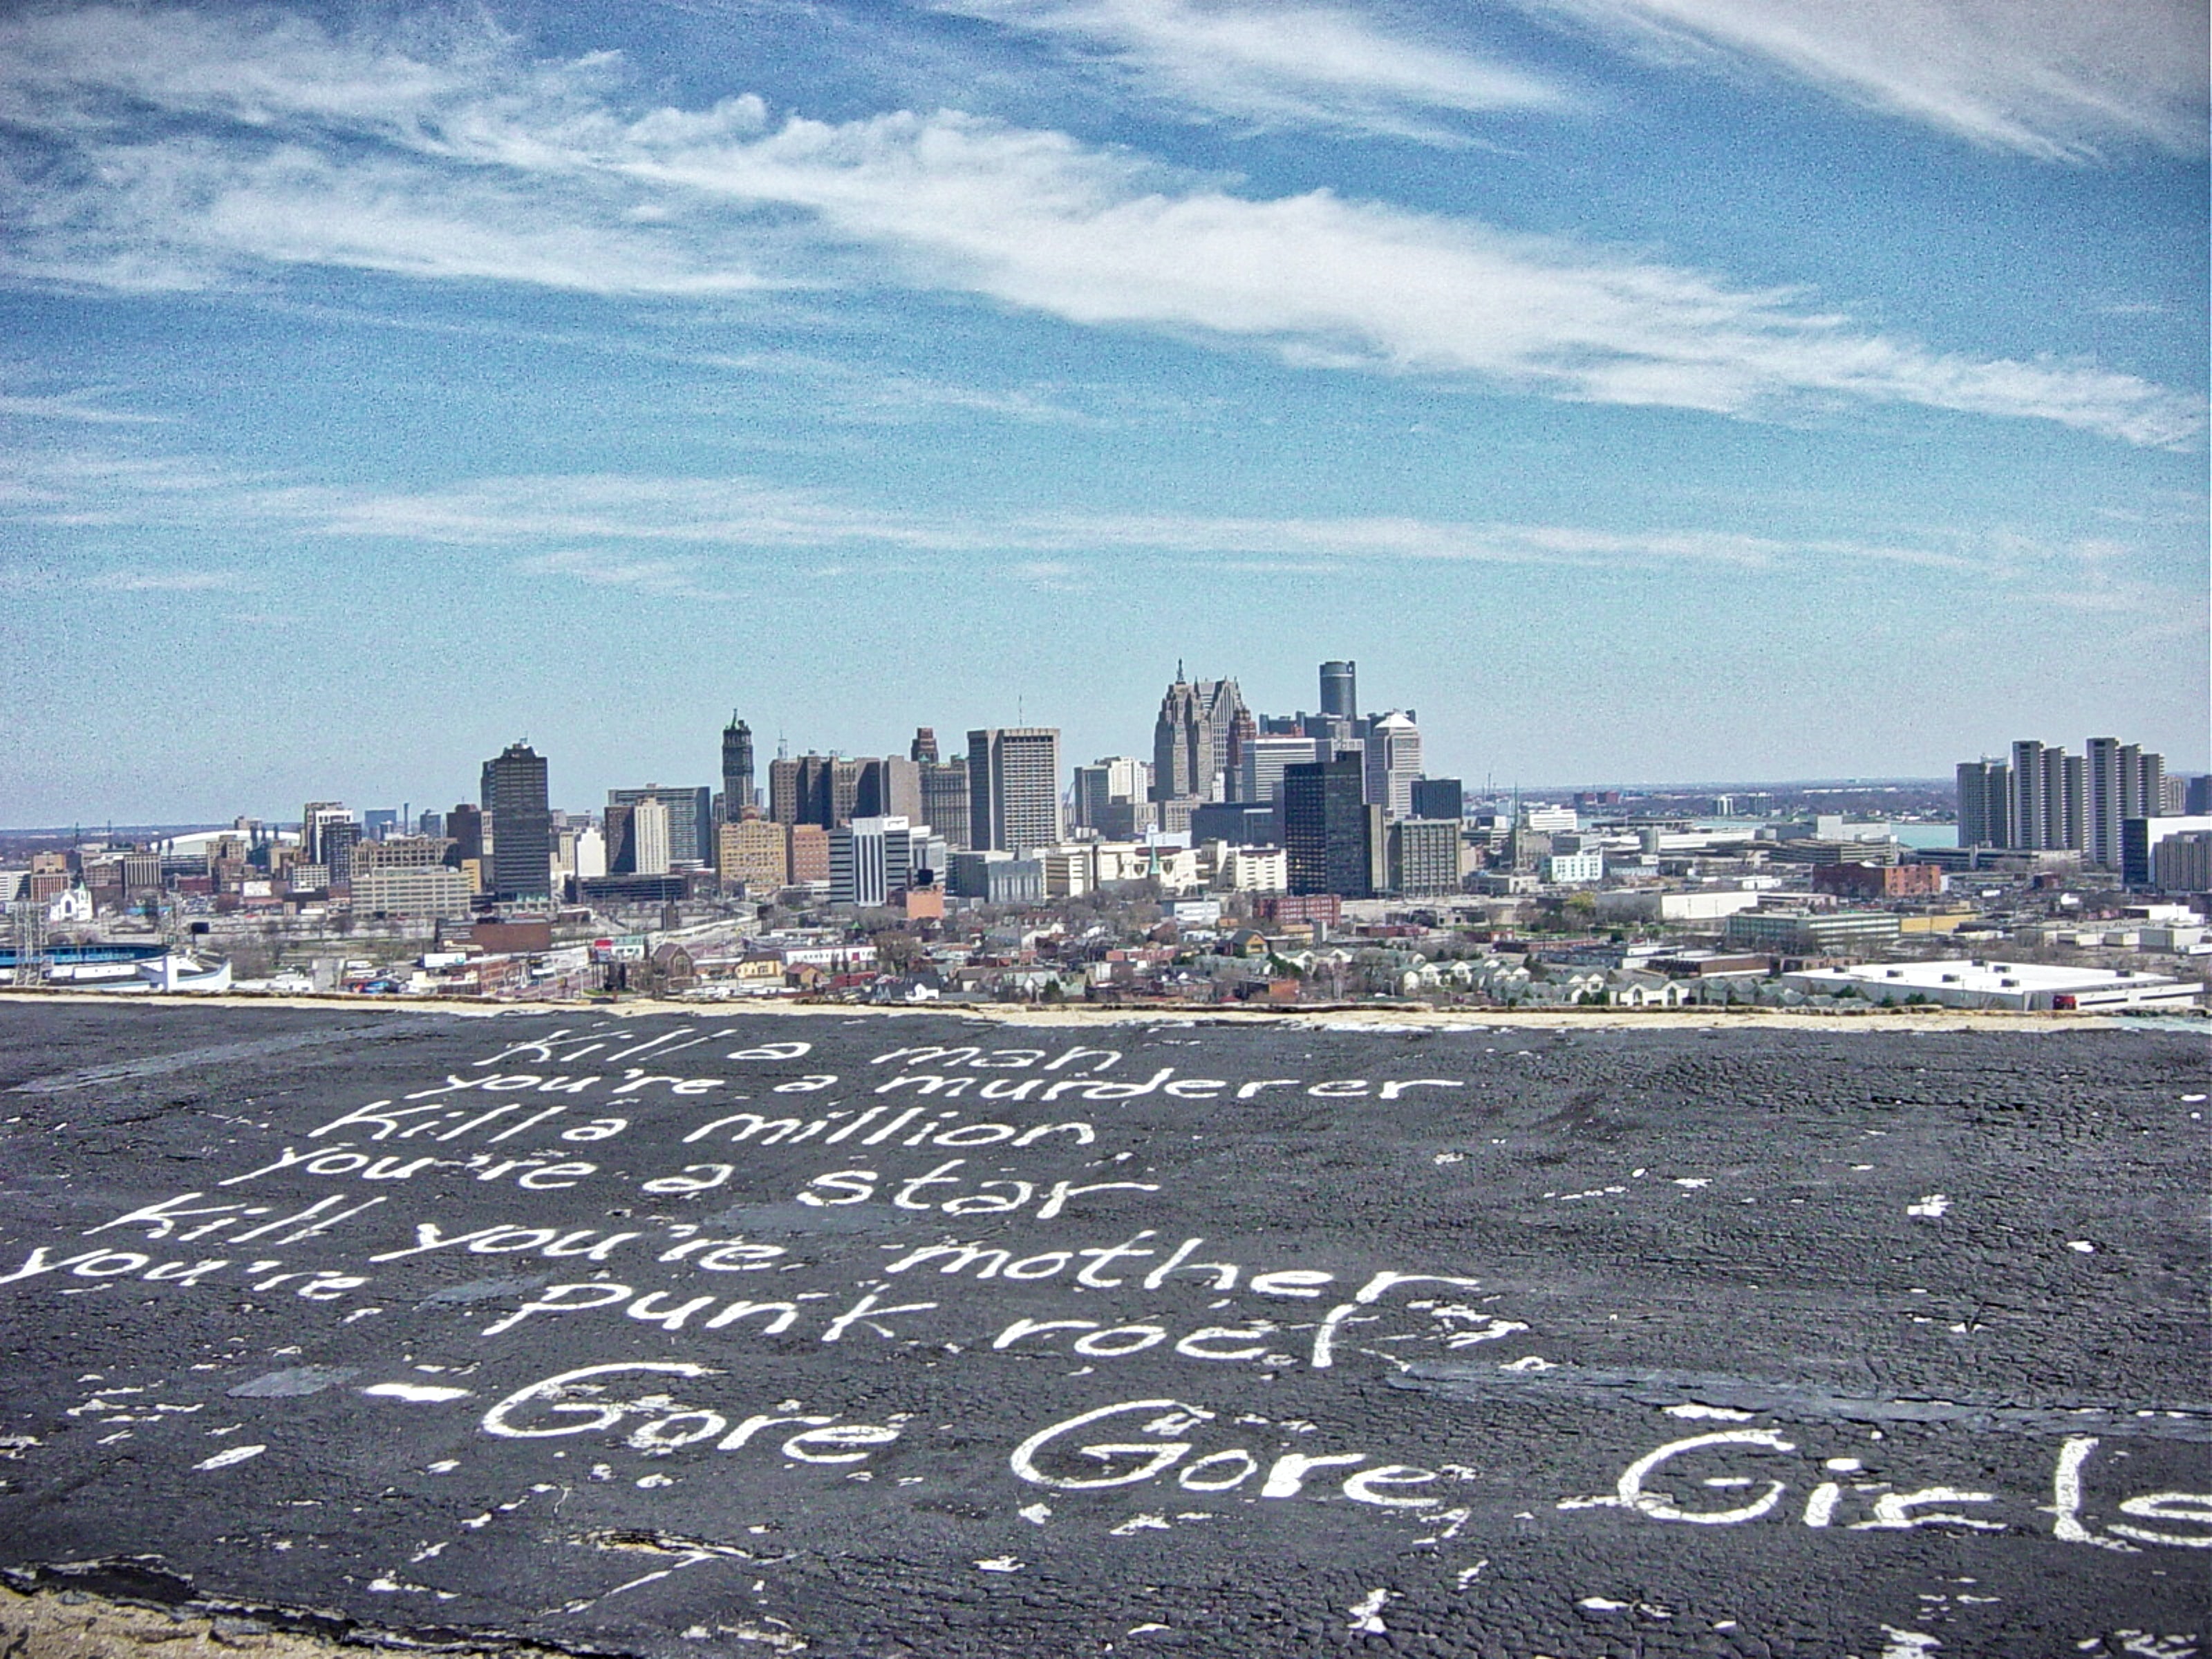 Kill a man
you're a murderer
Kill a million
you're a star
Kill you're mother
you're punk rock
Gore Gore Girls